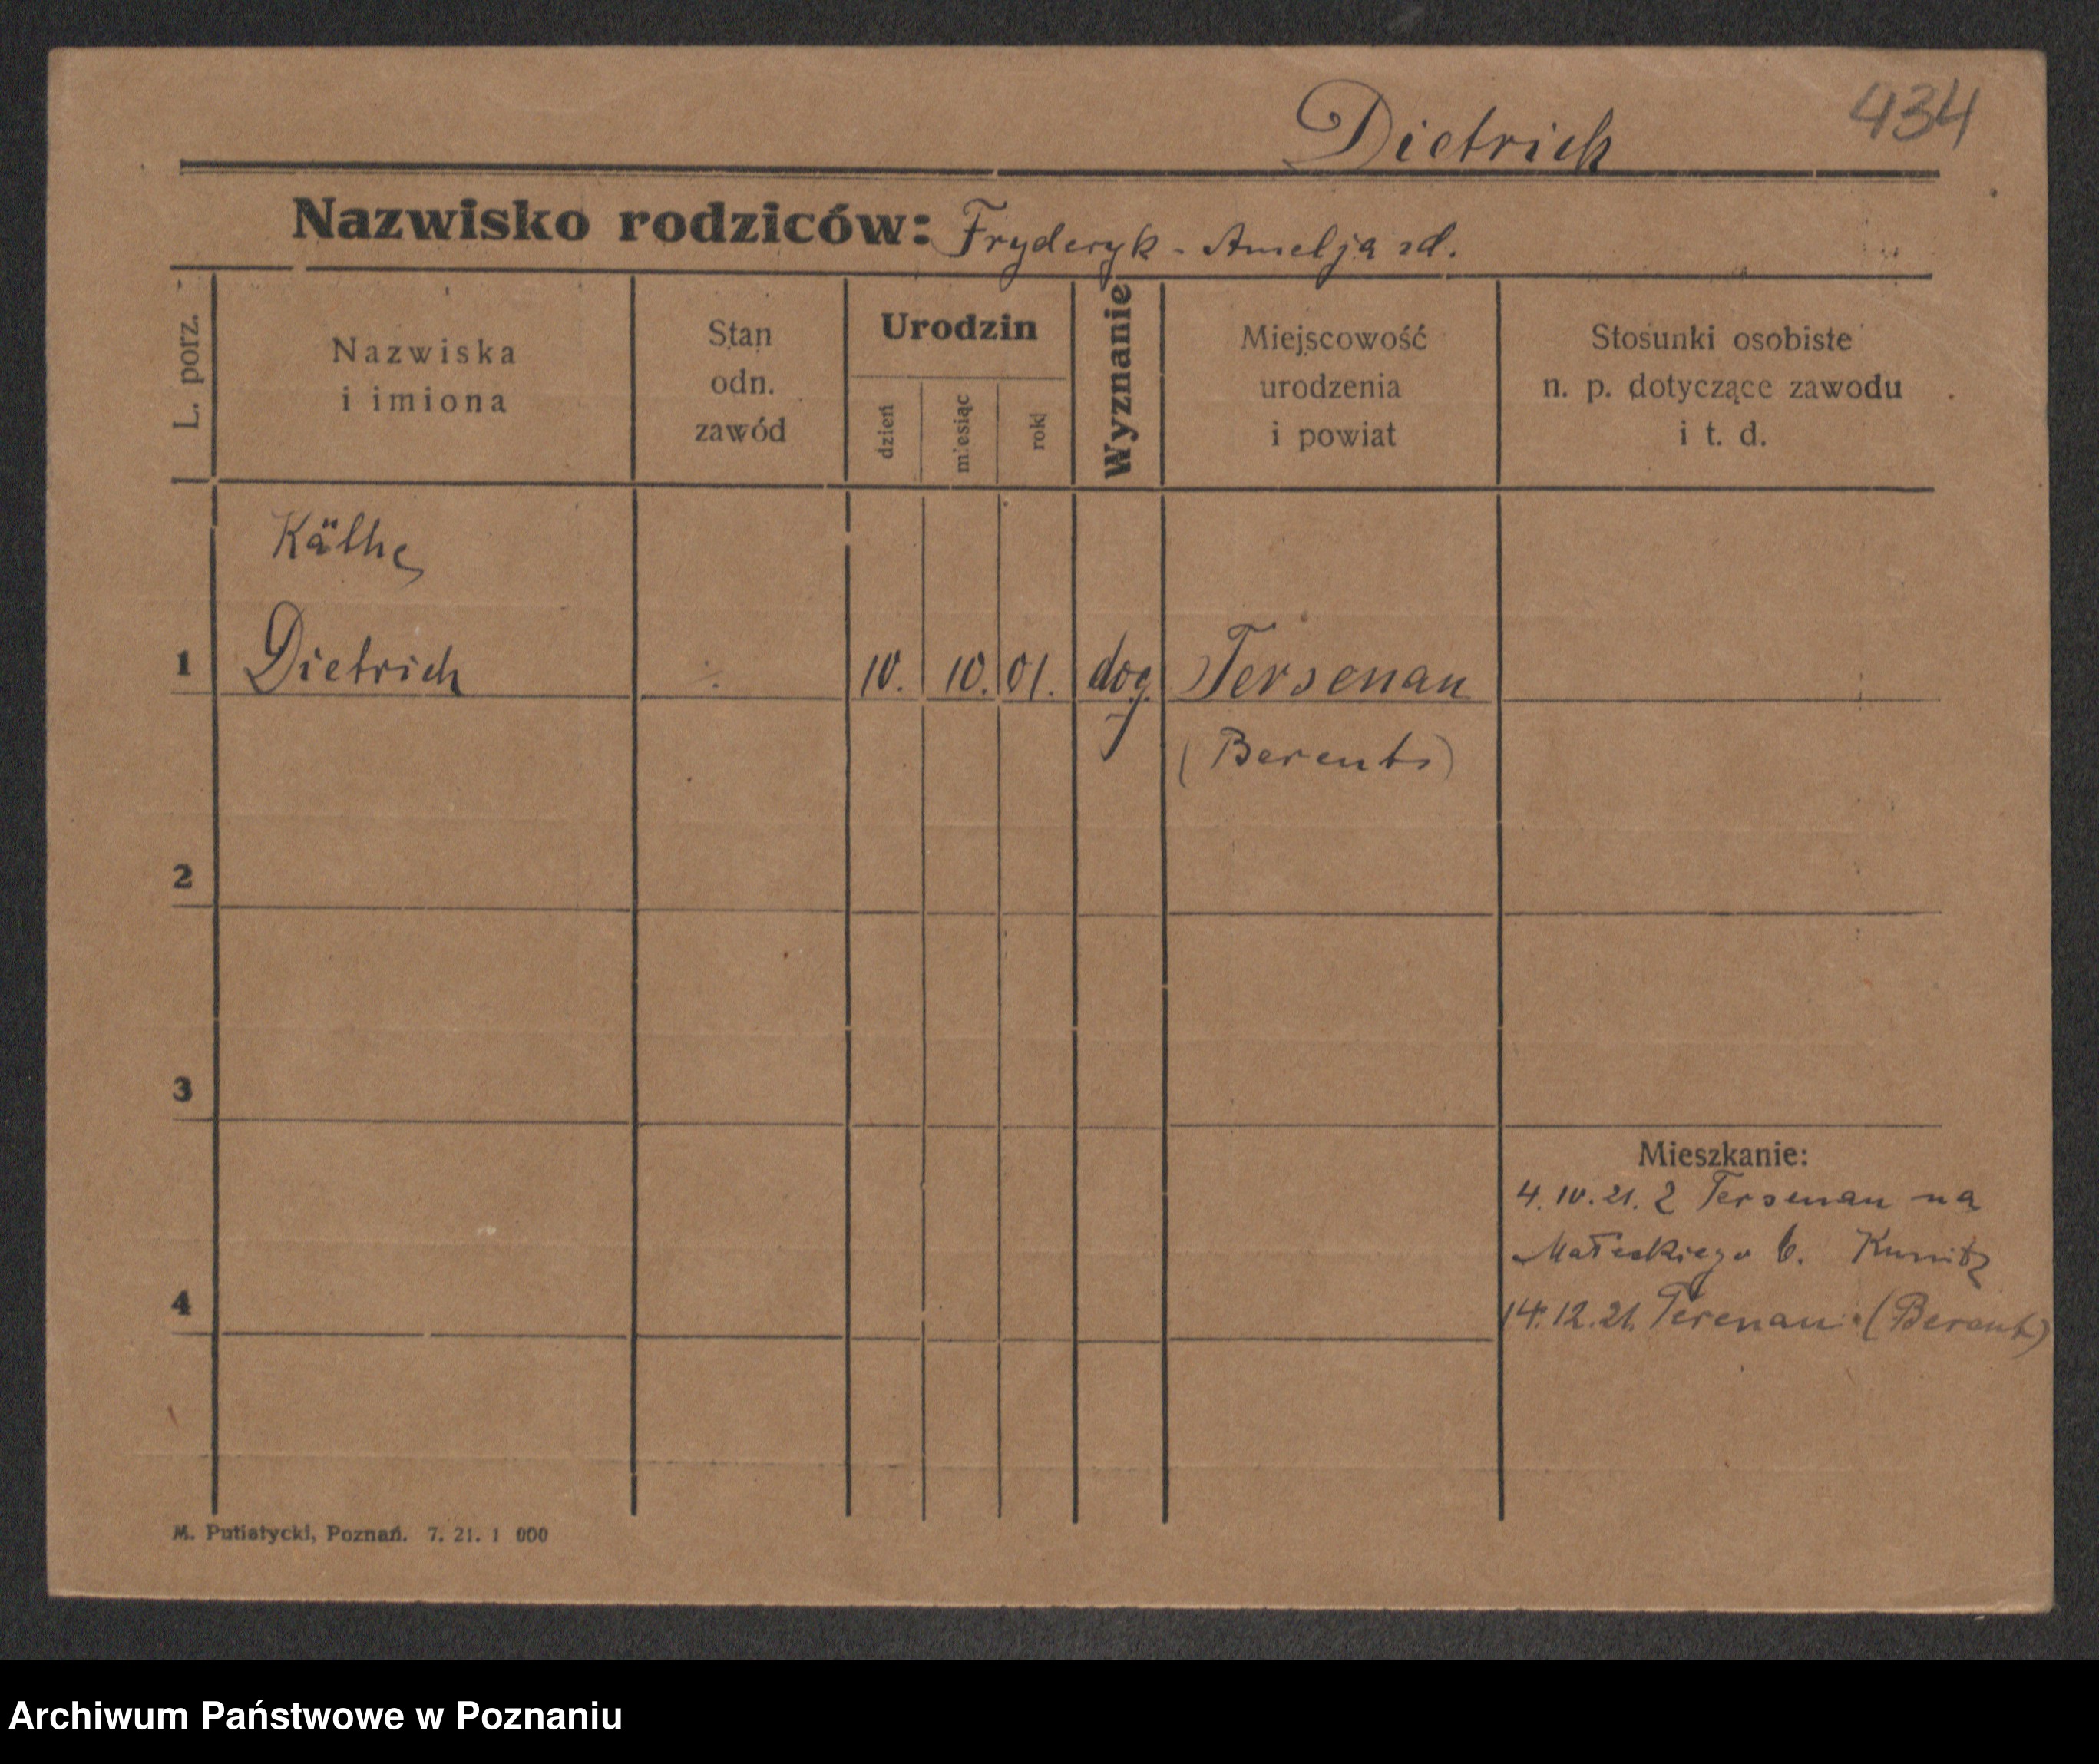 434
Dietrich
Nazwisko rodziców: Fryderyk - Amelja zd.
L. porz.
Nazwiska i imiona
Stan odn. zawód
Urodzin
dzień
miesiąc
rok
Wyznanie
Miejscowość urodzenia i powiat
Stosunki osobiste n. p. dotyczące zawodu i t. d.
Käthe
1 Dietrich 10. 10. 01. Tersenau
2
3
4
Mieszkanie:
4. 10. 21. Z Tersenau na
Małeckiego 6.
14. 12. 21. Terenau (Berent)
M. Putiatycki, Poznań. 7. 21. 1 000
Archiwum Państwowe w Poznaniu